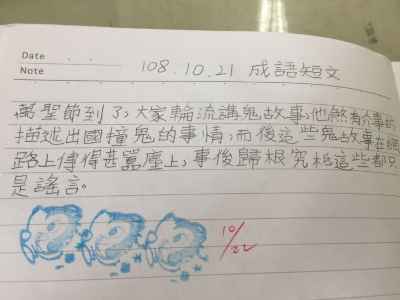 Date
Note
108.10.21 成語短文
萬聖節到了,大家輪流講鬼故事,他煞有介事的
描述出國撞鬼的事情,而後這些鬼故事在網
路上傳得甚囂塵上,事後歸根究柢這些都只
是謠言。
10/22